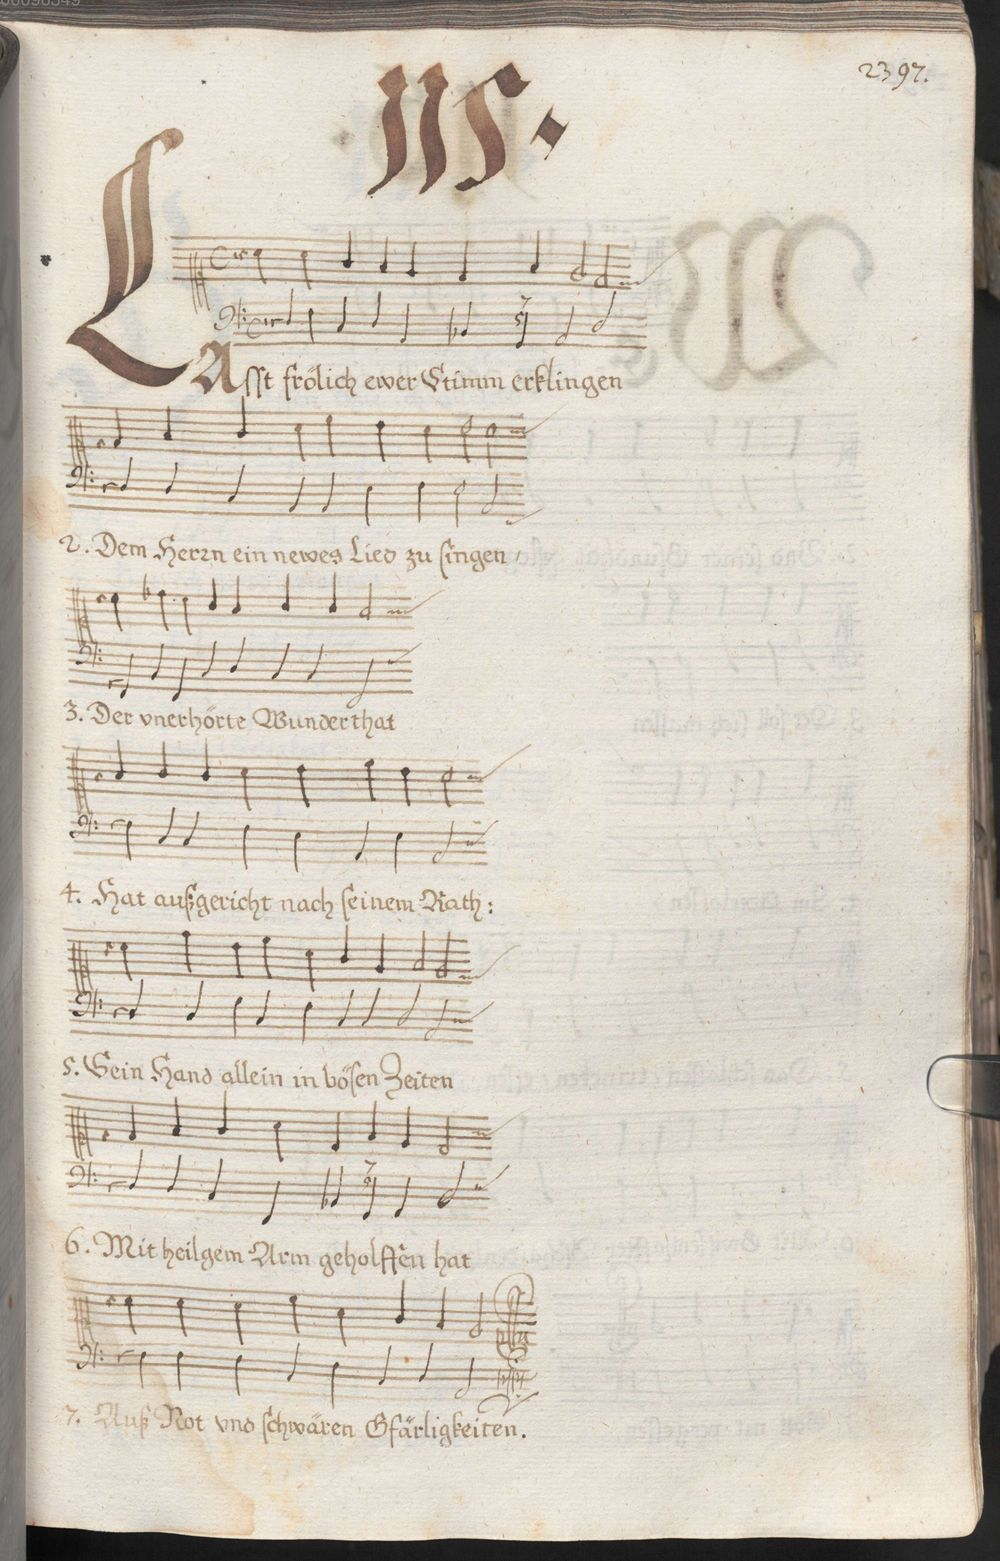 2397.
115.
LAsst frölich ewer Stimm erklingen
2. Dem Herrn ein newes Lied zu singen
3. Der vnerhörte Wunderthat
4. Hat außgericht nach seinem Rath:
5. Sein Hand allein in bösen Zeiten
6. Mit heilgem Arm geholffen hat
7. Auß Not vnd schwären Gfärligkeiten.